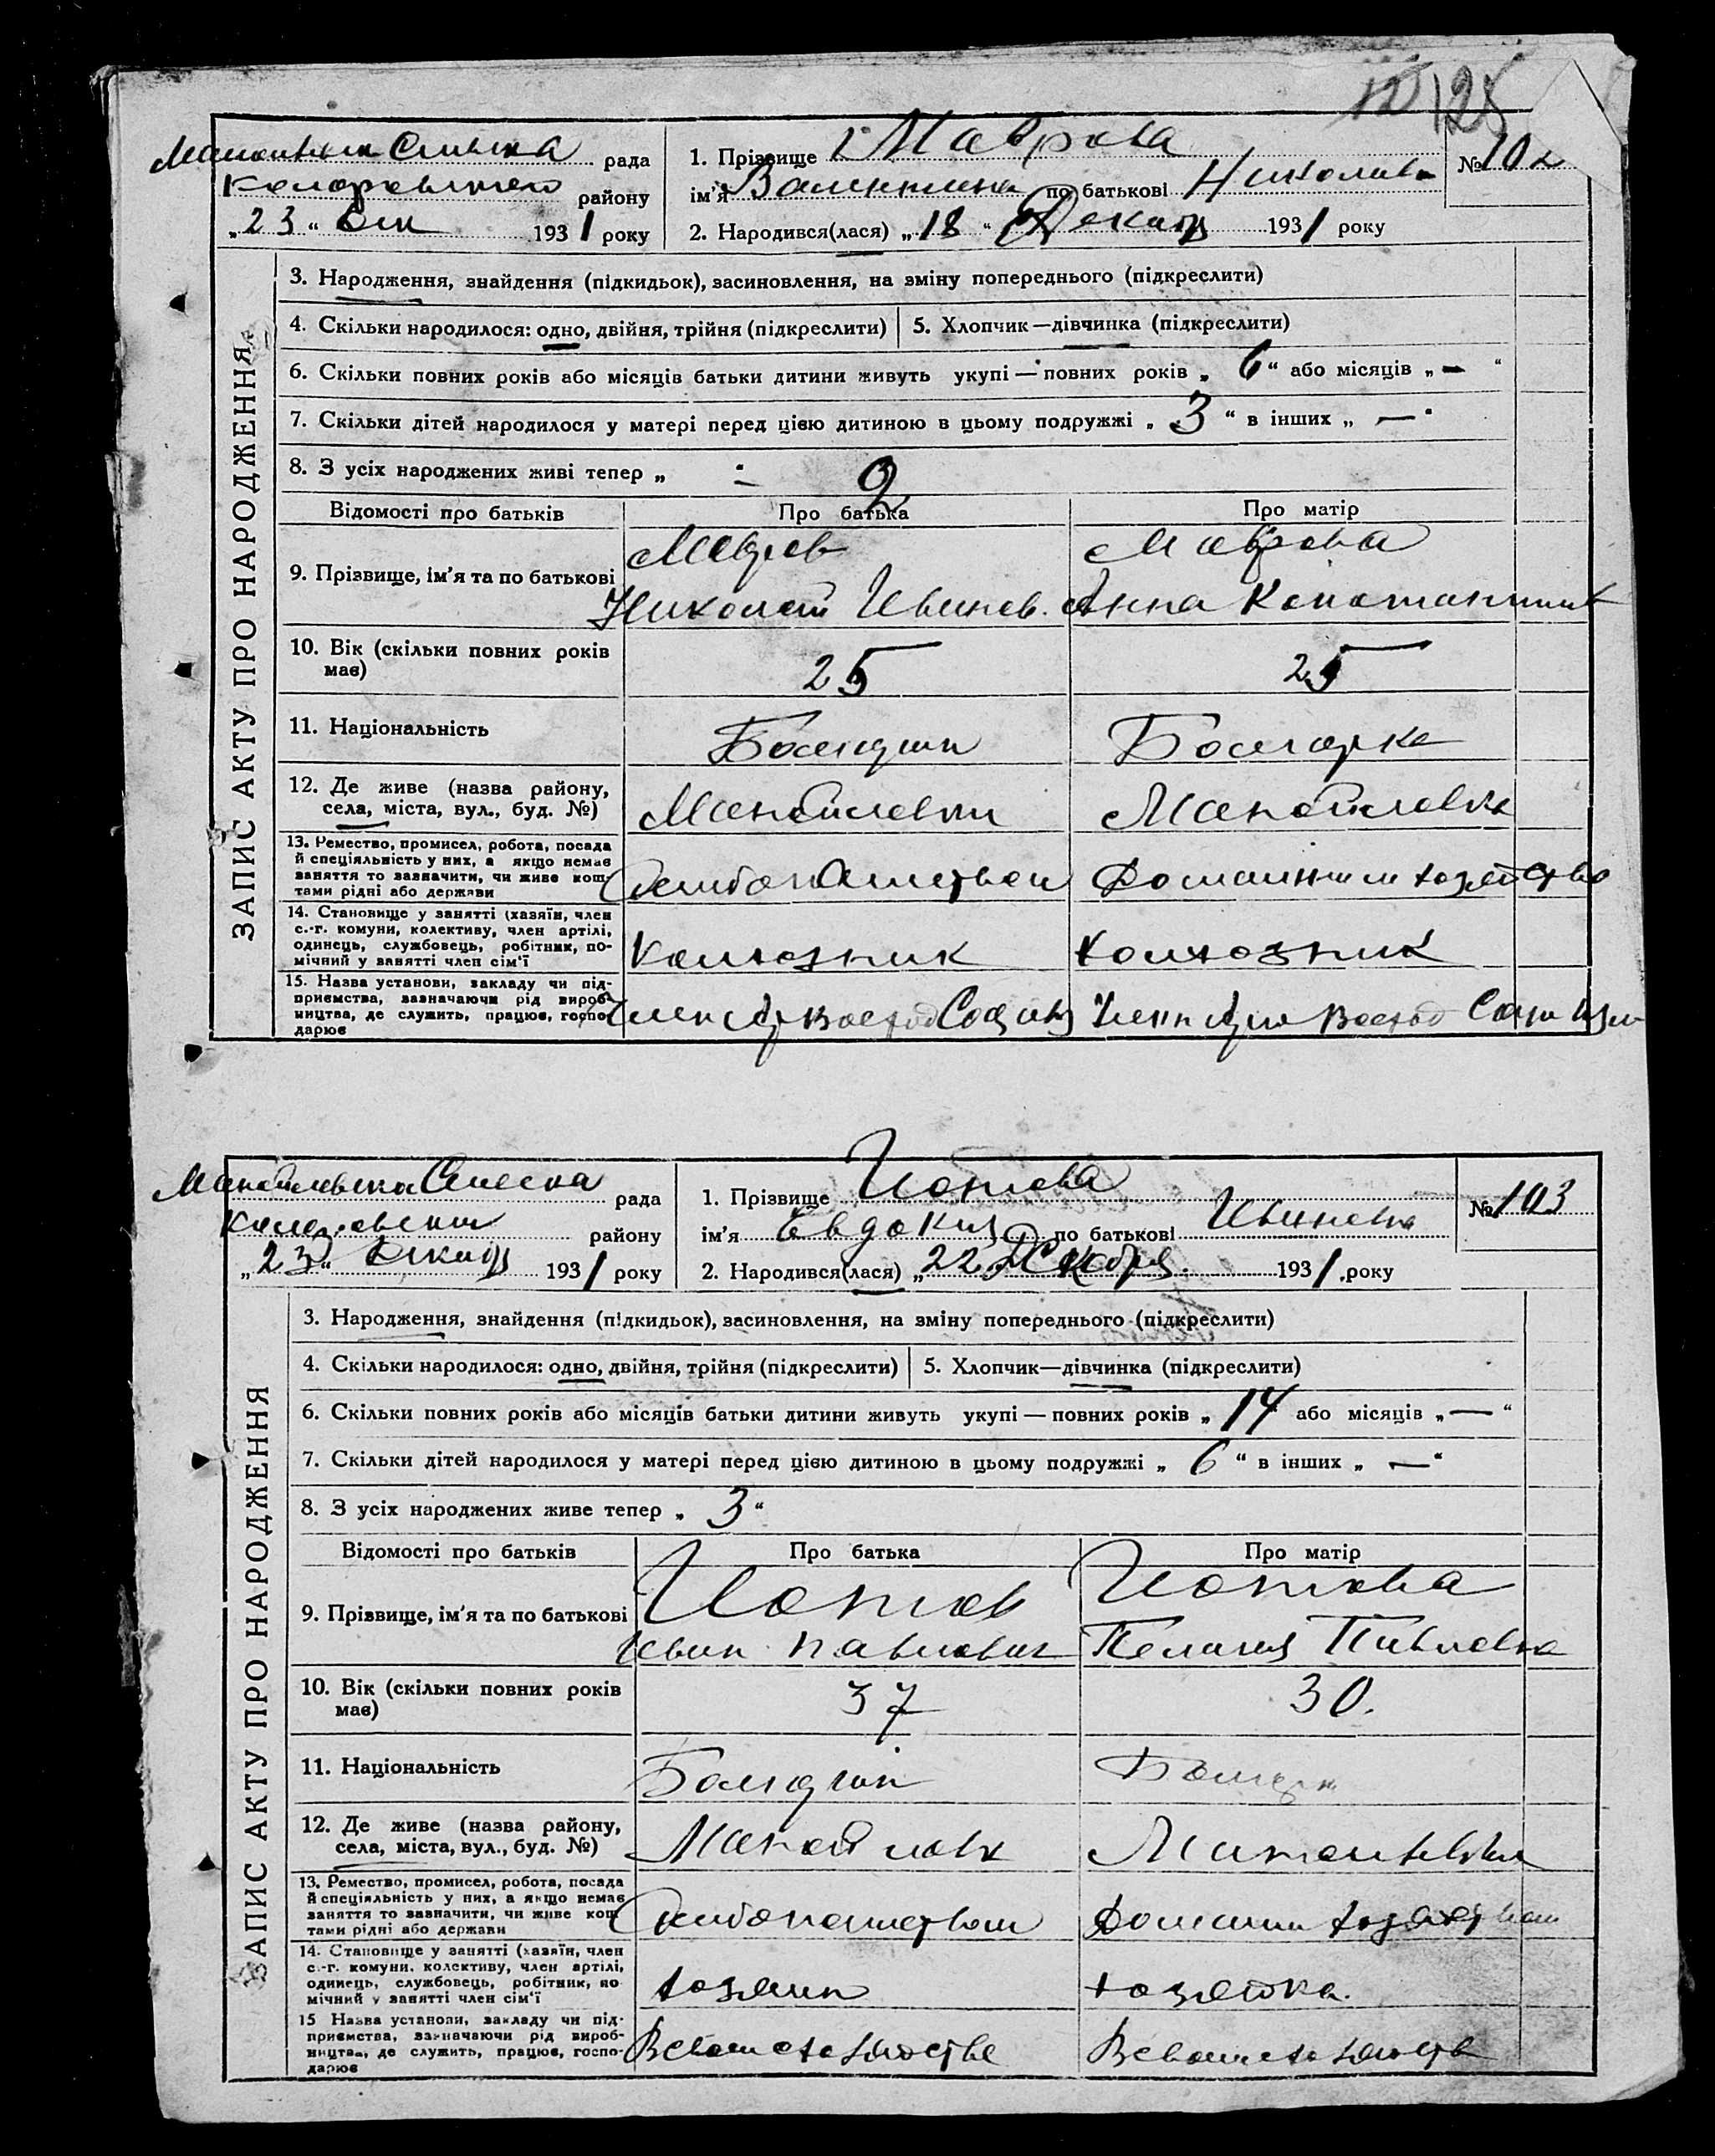 125
сельска рада
району
„23“ Дек 1931 року
1. Прізвище Маврова
№ 102
ім'я Валентина по батькові Николаева
2. Народився(лася) „18“ Декабр 1931 року
ЗАПИС АКТУ ПРО НАРОДЖЕННЯ
3. Народження, знайдення (підкидьок), засиновлення, на зміну попереднього (підкреслити)
4. Скільки народилося: одно, двійня, трійня (підкреслити) 5. Хлопчик—дівчинка (підкреслити)
6. Скільки повних років або місяців батьки дитини живуть укупі — повних років „6“ або місяців „—“
7. Скільки дітей народилося у матері перед цією дитиною в цьому подружжі „3“ в інших „—“
8. З усіх народжених живі тепер „
Відомості про батьків Про батька Про матір
9. Прізвище, ім'я та по батькові
Мавров Маврова
Николай Иванов. Анна
10. Вік (скільки повних років
має)
25 25
11. Національність Болгарин Болгарка
12. Де живе (назва району,
села, міста, вул., буд. №)
Манойловки Манойловка
13. Ремество, промисел, робота, посада
й спеціяльність у них, а якщо немає
заняття то зазначити, чи живе кош-
тами рідні або держави
Хлебопашеством Домашним хозяйство
14. Становище у занятті (хазяїн, член
с.-г. комуни, колективу, член артілі,
одинець, службовець, робітник, по-
мічний у занятті член сім'ї
Колхозник Колхозник
15. Назва установи, закладу чи під-
приємства, зазначаючи рід вироб-
ництва, де служить, працює, госпо-
дарює
Член Восход Член Восход
Сельска рада
району
„23“ Декабр 1931 року
1. Прізвище Йотова
№ 103
ім'я Евдокия по батькові Ивановна
2. Народився(лася) „22 Декабря 1931 року
ЗАПИС АКТУ ПРО НАРОДЖЕННЯ
3. Народження, знайдення (підкидьок), засиновлення, на зміну попереднього (підкреслити)
4. Скільки народилося: одно, двійня, трійня (підкреслити) 5. Хлопчик—дівчинка (підкреслити)
6. Скільки повних років або місяців батьки дитини живуть укупі — повних років „14“ або місяців „—“
7. Скільки дітей народилося у матері перед цією дитиною в цьому подружжі „6“ в інших „—“
8. З усіх народжених живе тепер „3“
Відомості про батьків Про батька Про матір
9. Прізвище, ім'я та по батькові
Йотов Йотова
Иван Павлович Пелагия Павловна
10. Вік (скільки повних років
має)
37 30.
11. Національність Болгарин Болгарк
12. Де живе (назва району,
села, міста, вул., буд. №)
Манойловк
13. Ремество, промисел, робота, посада
й спеціяльність у них, а якщо немає
заняття то зазначити, чи живе кош-
тами рідні або держави
Хлебопашеством Домашни хозяйством
14. Становище у занятті (хазяїн, член
с.-г. комуни, колективу, член артілі,
одинець, службовець, робітник, по-
мічний у занятті член сім'ї
хозяин хозяйка.
15 Назва установи, закладу чи під-
приємства, зазначаючи рід вироб-
ництва, де служить, працює, госпо-
дарює